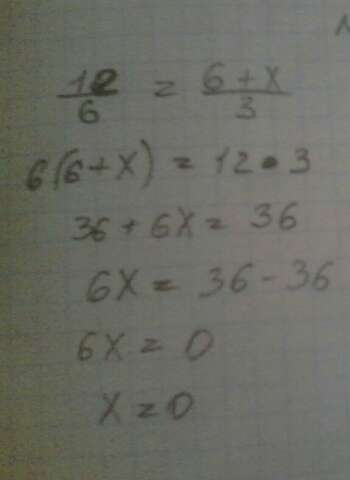 12/6 = 6+x/3
6(6+x) = 12•3
36+6x = 36
6x = 36-36
6x = 0
x = 0